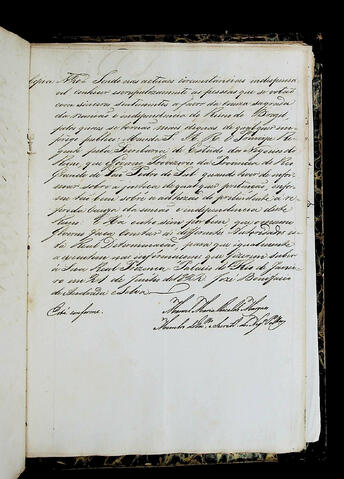 Copia Nº 2 Sendo nas actuaes circumstancias indispensa
vel conhecer escrupulozamente as pessoas que se votão
com sinceros sentimentos a favor da causa sagrada
da união e independencia do Reino do Brazil
pelos quaes se tornão mais dignas de qualquer em
prego publico: Manda S. A. R. O Principe Re
gente pela Secretaria de Estado dos Negocios do
Reino, que o Governo Provizorio da Provincia do Rio
Grande de São Pedro do Sul quando houver de infor
mar sobre a justiça de qualquer pertenção, infor
me tão bem sobre a adhezão do pertendente á re
ferida causa da união e independencia deste
Reino. E Ha outro sim por bem que o mesmo
Governo faça constar ás differentes Authoridades es
ta Real Determinação, para que igualmente
a executem nas informaçoens que fizerem subir
á Sua Real Prezença. Palacio do Rio de Janei
ro em 21 de Junho de 1822. José Bonifacio
de Andrada e Silva.
Está conforme.
Manoel Maria